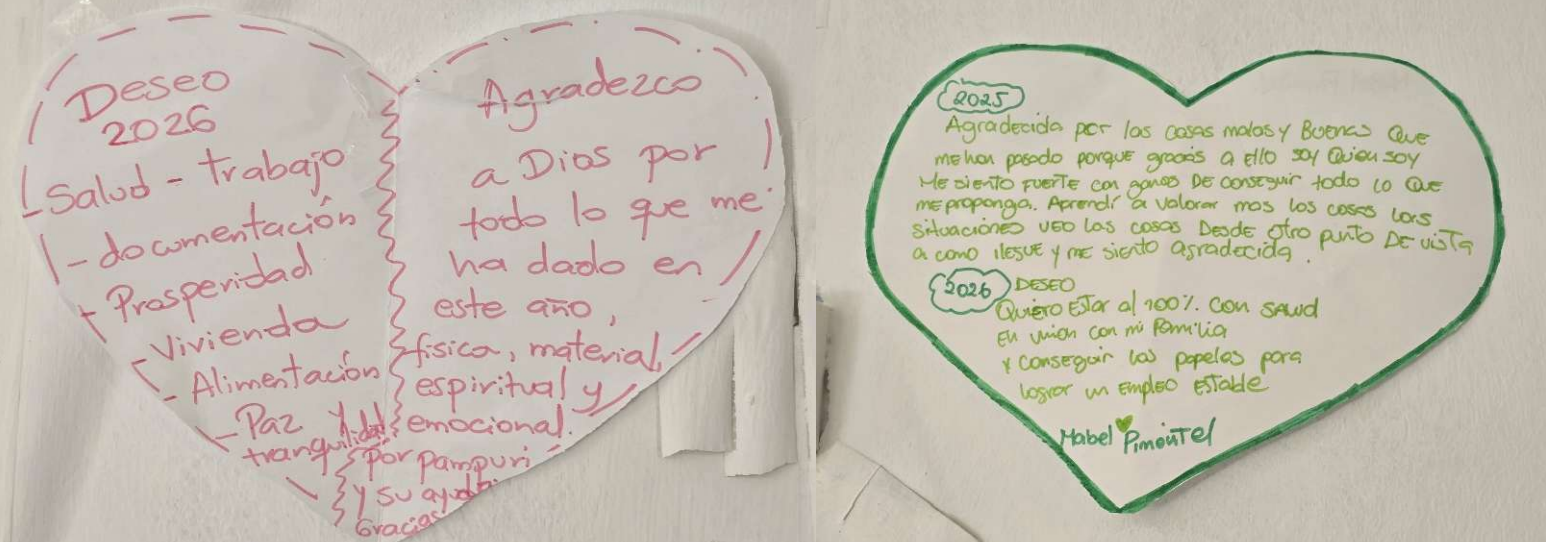 Deseo
2026
- Salud - trabajo
- documentación
- Prosperidad
- Vivienda
- Alimentación
- Paz y
tranquilidad
Agradezco
a Dios por
todo lo que me
ha dado en
este año,
fisica, material,
espiritual y
emocional.
por pampuri
y su ayuda.
Gracias
2025
Agradecida por las cosas malas y Buenas Que
me han pasado porque gracias a ello soy Quien soy
Me siento FUERTE con ganas DE conseguir todo lo QUE
me proponga. Aprendí a valorar mas las cosas las
situaciones VEO las cosas Desde otro punto DE vista
a como llegue y me siento agradecida.
2026 DESEO
QUIERO ESTAR al 100%. con salud
En union con mi Familia
y conseguir los papeles para
lograr un EMPLEO ESTABLE
Mabel Pimentel